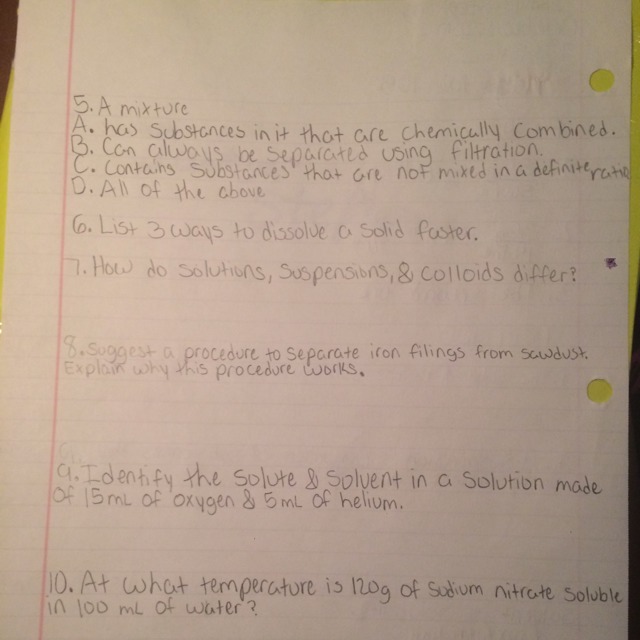 5. A mixture
A. has substances in it that are chemically combined.
B. Can always be separated using filtration.
C. Contains substances that are not mixed in a definite ratio
D. All of the above
6. List 3 ways to dissolve a solid faster.
7. How do solutions, suspensions, & colloids differ?
8. Suggest a procedure to separate iron filings from sawdust.
Explain why this procedure works.
9. Identify the solute & solvent in a solution made
of 15 mL of oxygen & 5 mL of helium.
10. At what temperature is 120g of sodium nitrate soluble
in 100 mL of water?